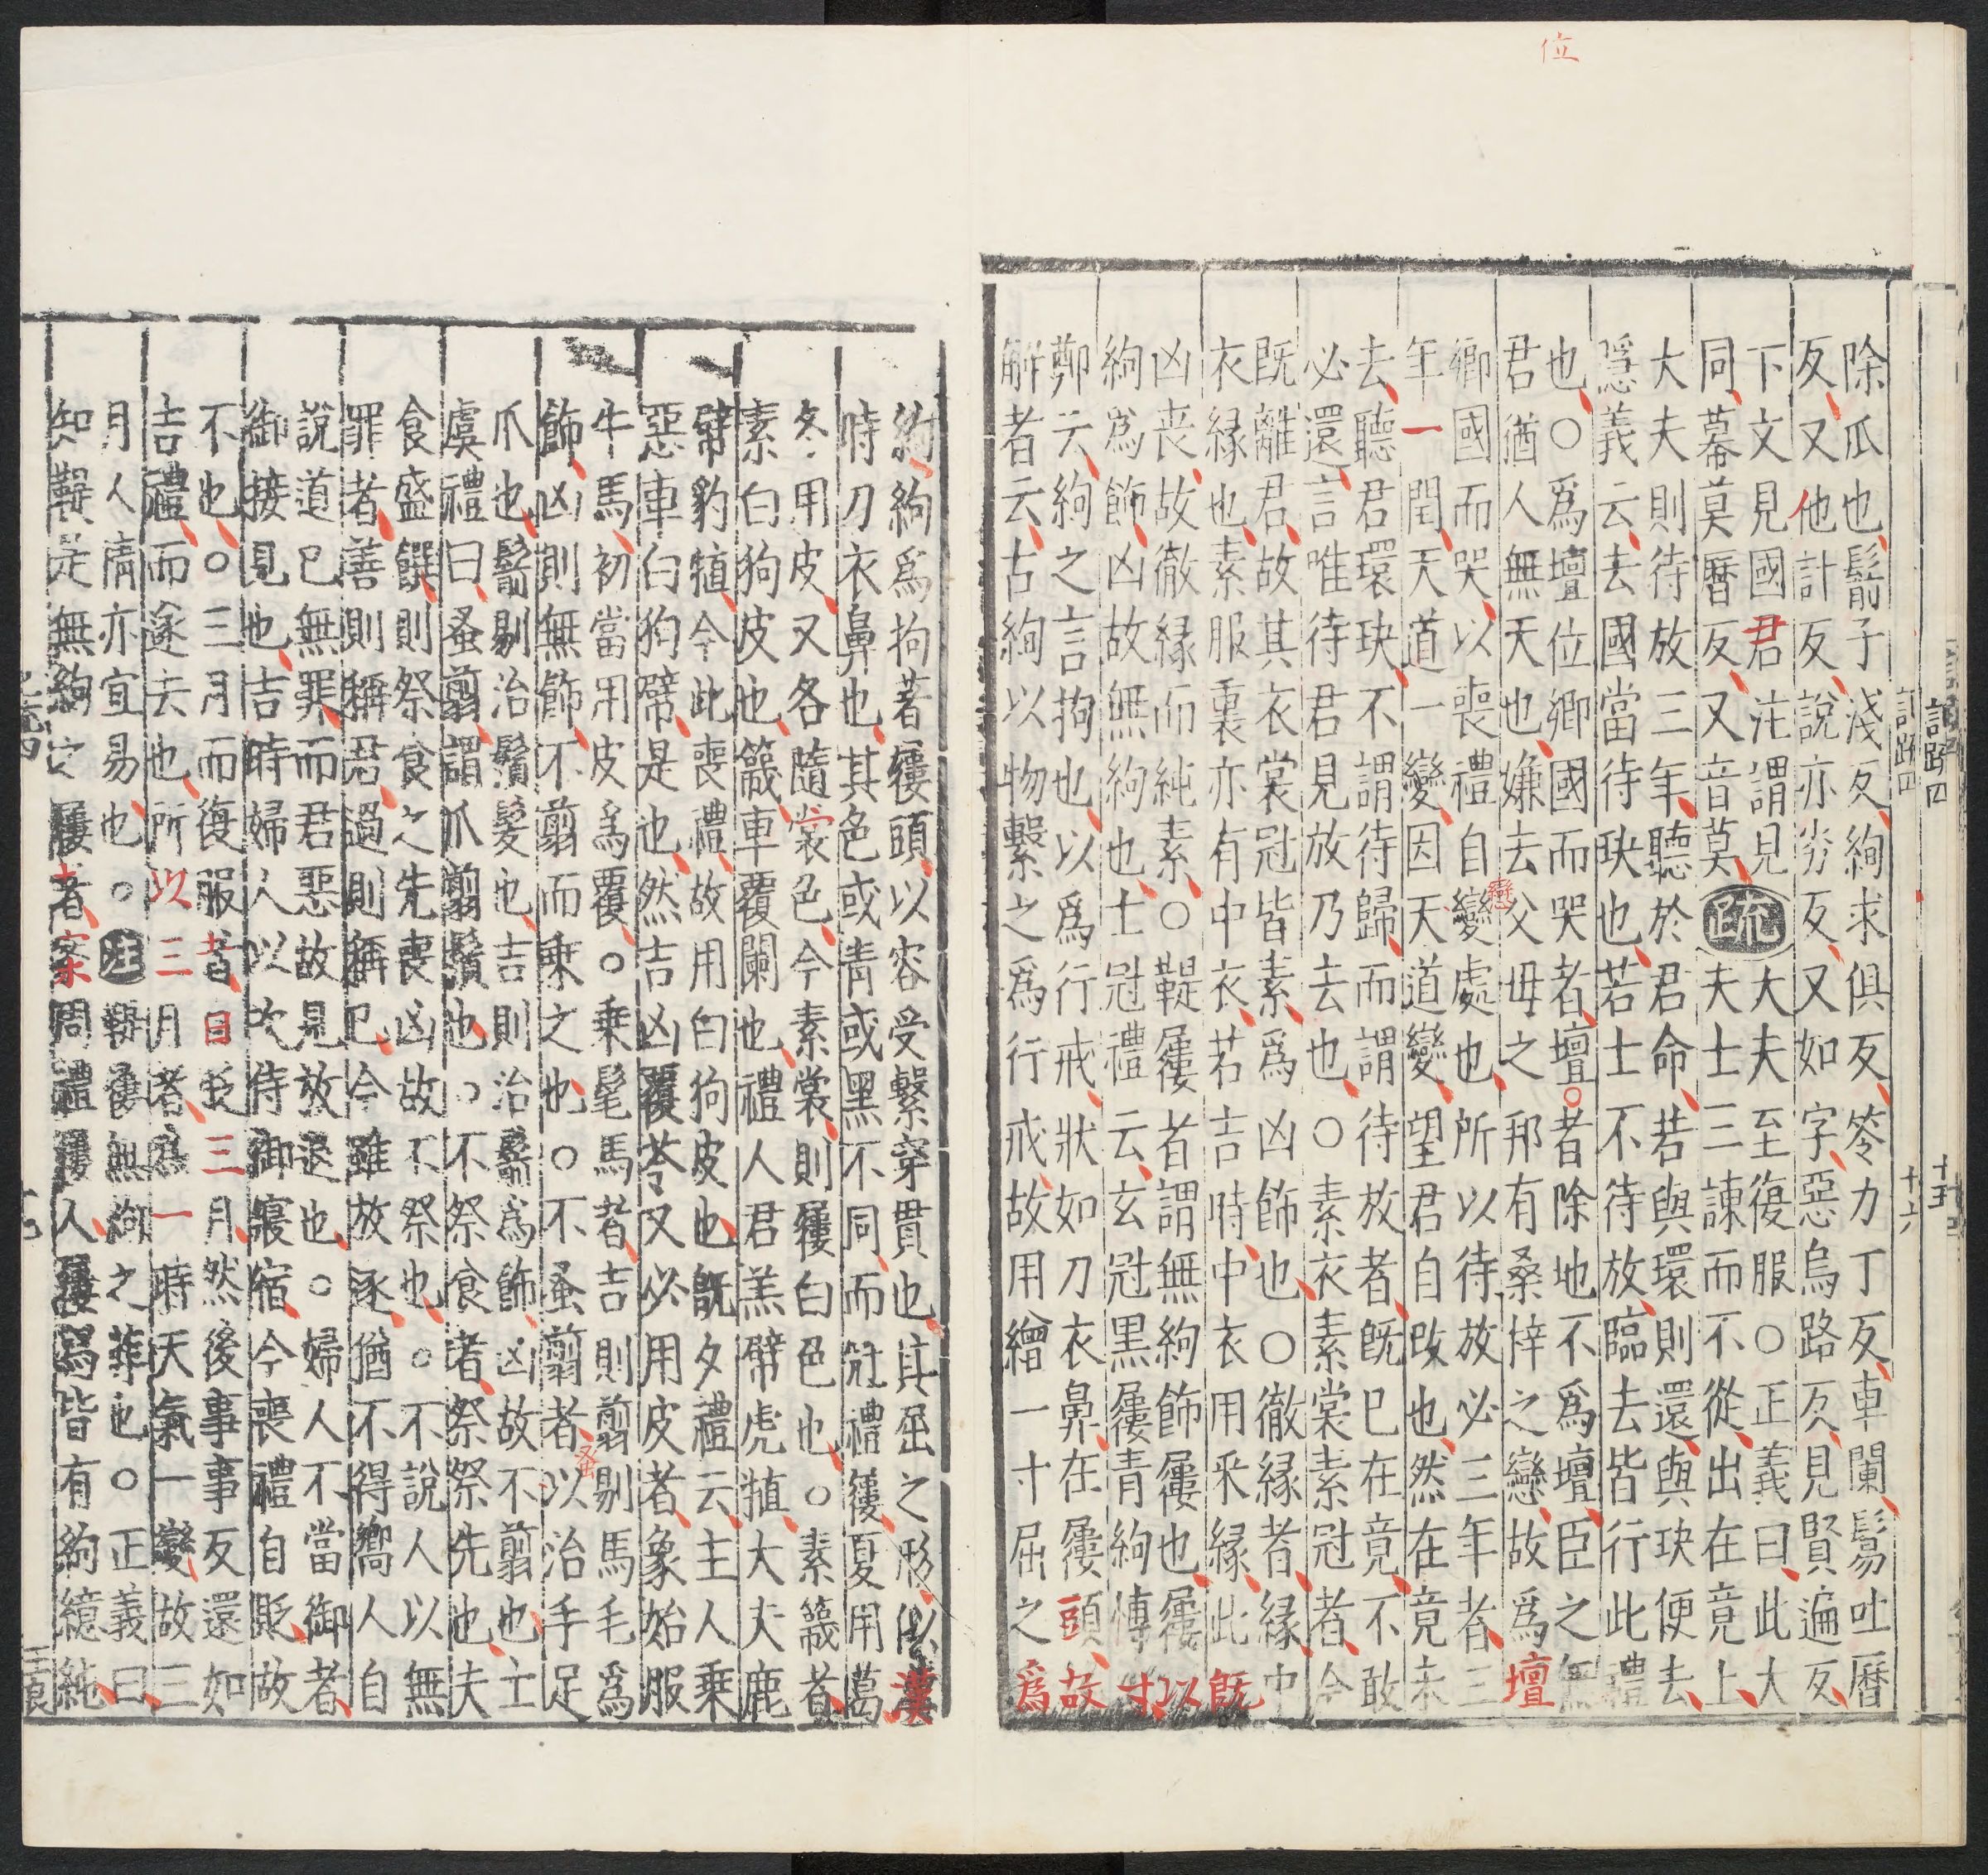 位
除爪也鬋子淺反絇求俱反笭力丁反車闌鬄吐曆
反又他計反說亦劣反又如字惡烏路反見賢遍反
下文見國君注謂見
同幕莫曆反又音莫
疏
大夫至復服○正義曰此大
夫士三諫而不從出在竟上
大夫則待放三年聽於君命若與環則還與玦便去
隱義云去國當待玦也若士不待放臨去皆行此禮
也○爲壇位鄉國而哭者壇○者除地不爲壇臣之無
君猶人無天也嫌去父母之邦有桑梓之戀故爲壇
鄉國而哭以喪禮自變處也所以待放必三年者三
戀
年一閏天道一變因天道變望君自改也然在竟未
去聽君環玦不謂待歸而謂待放者既已在竟不敢
必還言唯待君見放乃去也○素衣素裳素冠者今
既離君故其衣裳冠皆素爲凶飾也○徹緣者緣中
衣緣也素服裏亦有中衣若吉時中衣用采緣此既
凶喪故徹緣而純素○鞮屨者謂無絇飾屨也屨以
絇爲飾凶故無絇也士冠禮云玄冠黑屨青絇博寸
鄭云絇之言拘也以爲行戒狀如刀衣鼻在屨頭故
解者云古絇以物繫之爲行戒故用繒一寸屈之爲
絇絇爲拘著屨頭以容受繫穿貫也其屈之形似漢
時刀衣鼻也其色或青或黑不同而冠禮屨夏用葛
冬用皮又各隨裳色今素裳則屨白色也○素簚者
素白狗皮也簚車覆闌也禮人君羔幦虎犆大夫鹿
幦豹犆今此喪禮故用白狗皮也既夕禮云主人乗
惡車白狗幦是也然吉凶覆苓又必用皮者象始服
牛馬初當用皮爲覆○乗髦馬者吉則剪剔馬毛爲
飾凶則無飾不剪而乗之也○不蚤剪者以治手足
蚤
爪也鬋剔治鬚髮也吉則治鬋爲飾凶故不剪也士
虞禮曰蚤剪謂爪剪鬚也○不祭食者祭祭先也夫
食盛饌則祭食之先喪凶故不祭也○不說人以無
罪者善則稱君過則稱已今雖放逐猶不得嚮人自
說道已無罪而君惡故見放退也○婦人不當御者
御接見也吉時婦人以次侍御寢宿今喪禮自貶故
不也○三月而復服者自貶三月然後事事反還如
吉禮而遂去也所以三月者爲一時天氣一變故三
月人情亦宜易也○
注
鞮屨無絇之菲也○正義曰
知鞮是無絇之屨者案周禮屨人屨舄皆有絇繶純